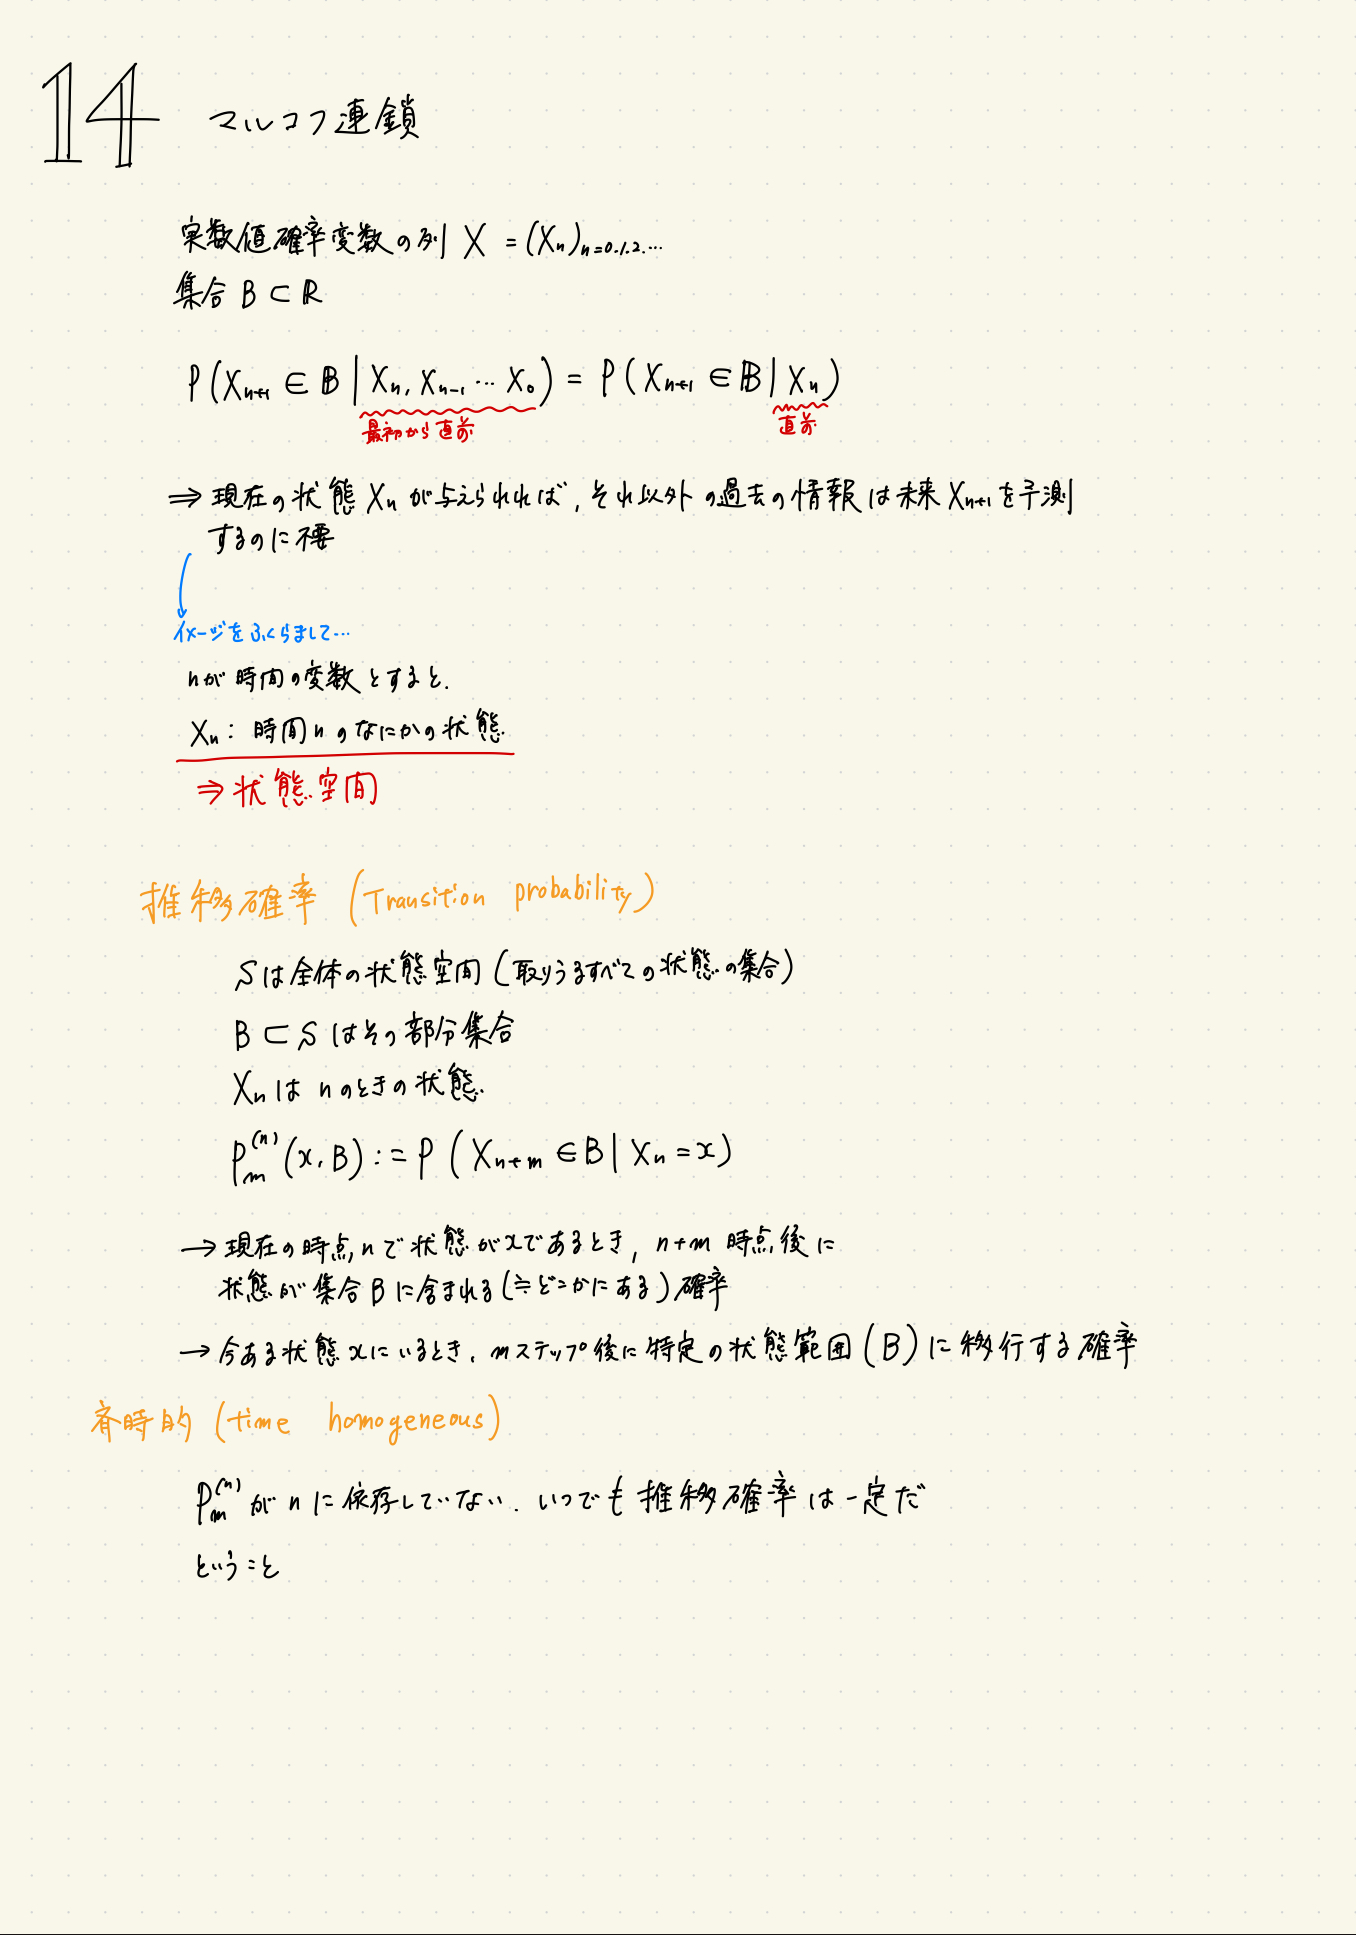 14 マルコフ連鎖
実数値確率変数の列 X = (Xn)n=0.1.2.…
集合 B ⊂ R
P(Xn+1 ∈ B | Xn, Xn-1 … X0) = P(Xn+1 ∈ B | Xn)
最初から直前 直前
⇒ 現在の状態 Xn が与えられれば, それ以外の過去の情報は未来 Xn+1 を予測
するのに不要
イメージをふくらまして…
nが時間の変数とすると.
Xn : 時間nのなにかの状態
⇒ 状態空間
推移確率 (Transition probability)
Sは全体の状態空間 (取りうるすべての状態の集合)
B ⊂ S はその部分集合
Xnは nのときの状態.
Pm(n)(x, B) := P (Xn+m ∈ B | Xn = x)
→ 現在の時点nで状態がxであるとき, n+m 時点後に
状態が集合Bに含まれる (≒どこかにある) 確率
→ 今ある状態xにいるとき, mステップ後に特定の状態範囲 (B) に移行する確率
斉時的 (time homogeneous)
Pm(n) が n に依存していない. いつでも推移確率は一定だ
ということ